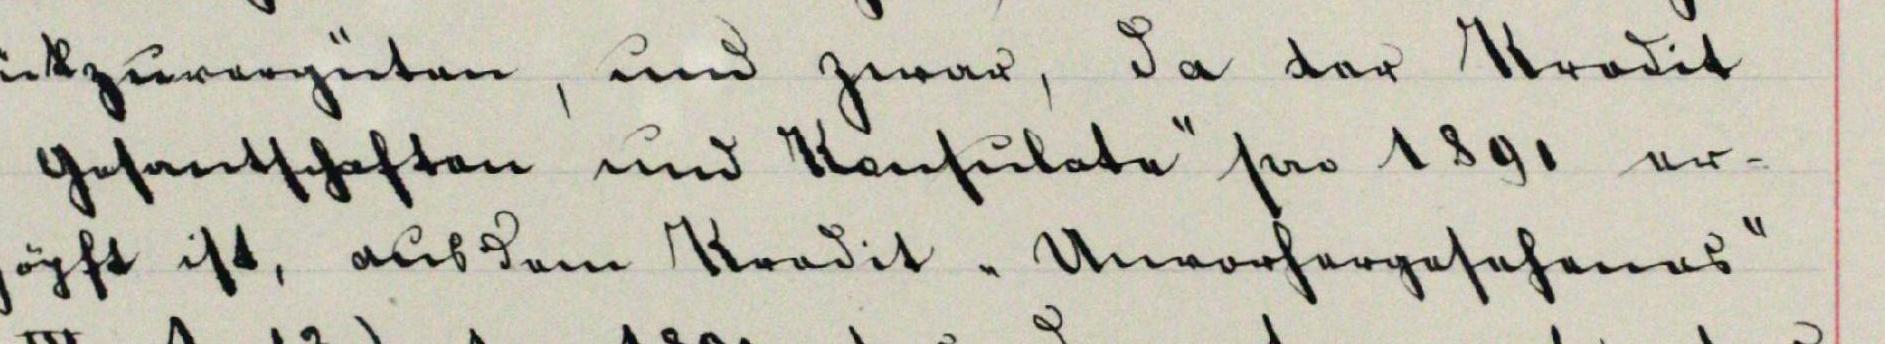 ückzuvergüten, und zwar, da der Kredit
Gesantschaften und Konsulate" pro 1891 er-
höpft ist, aus dem Kredit „Unvorhergesehenes"